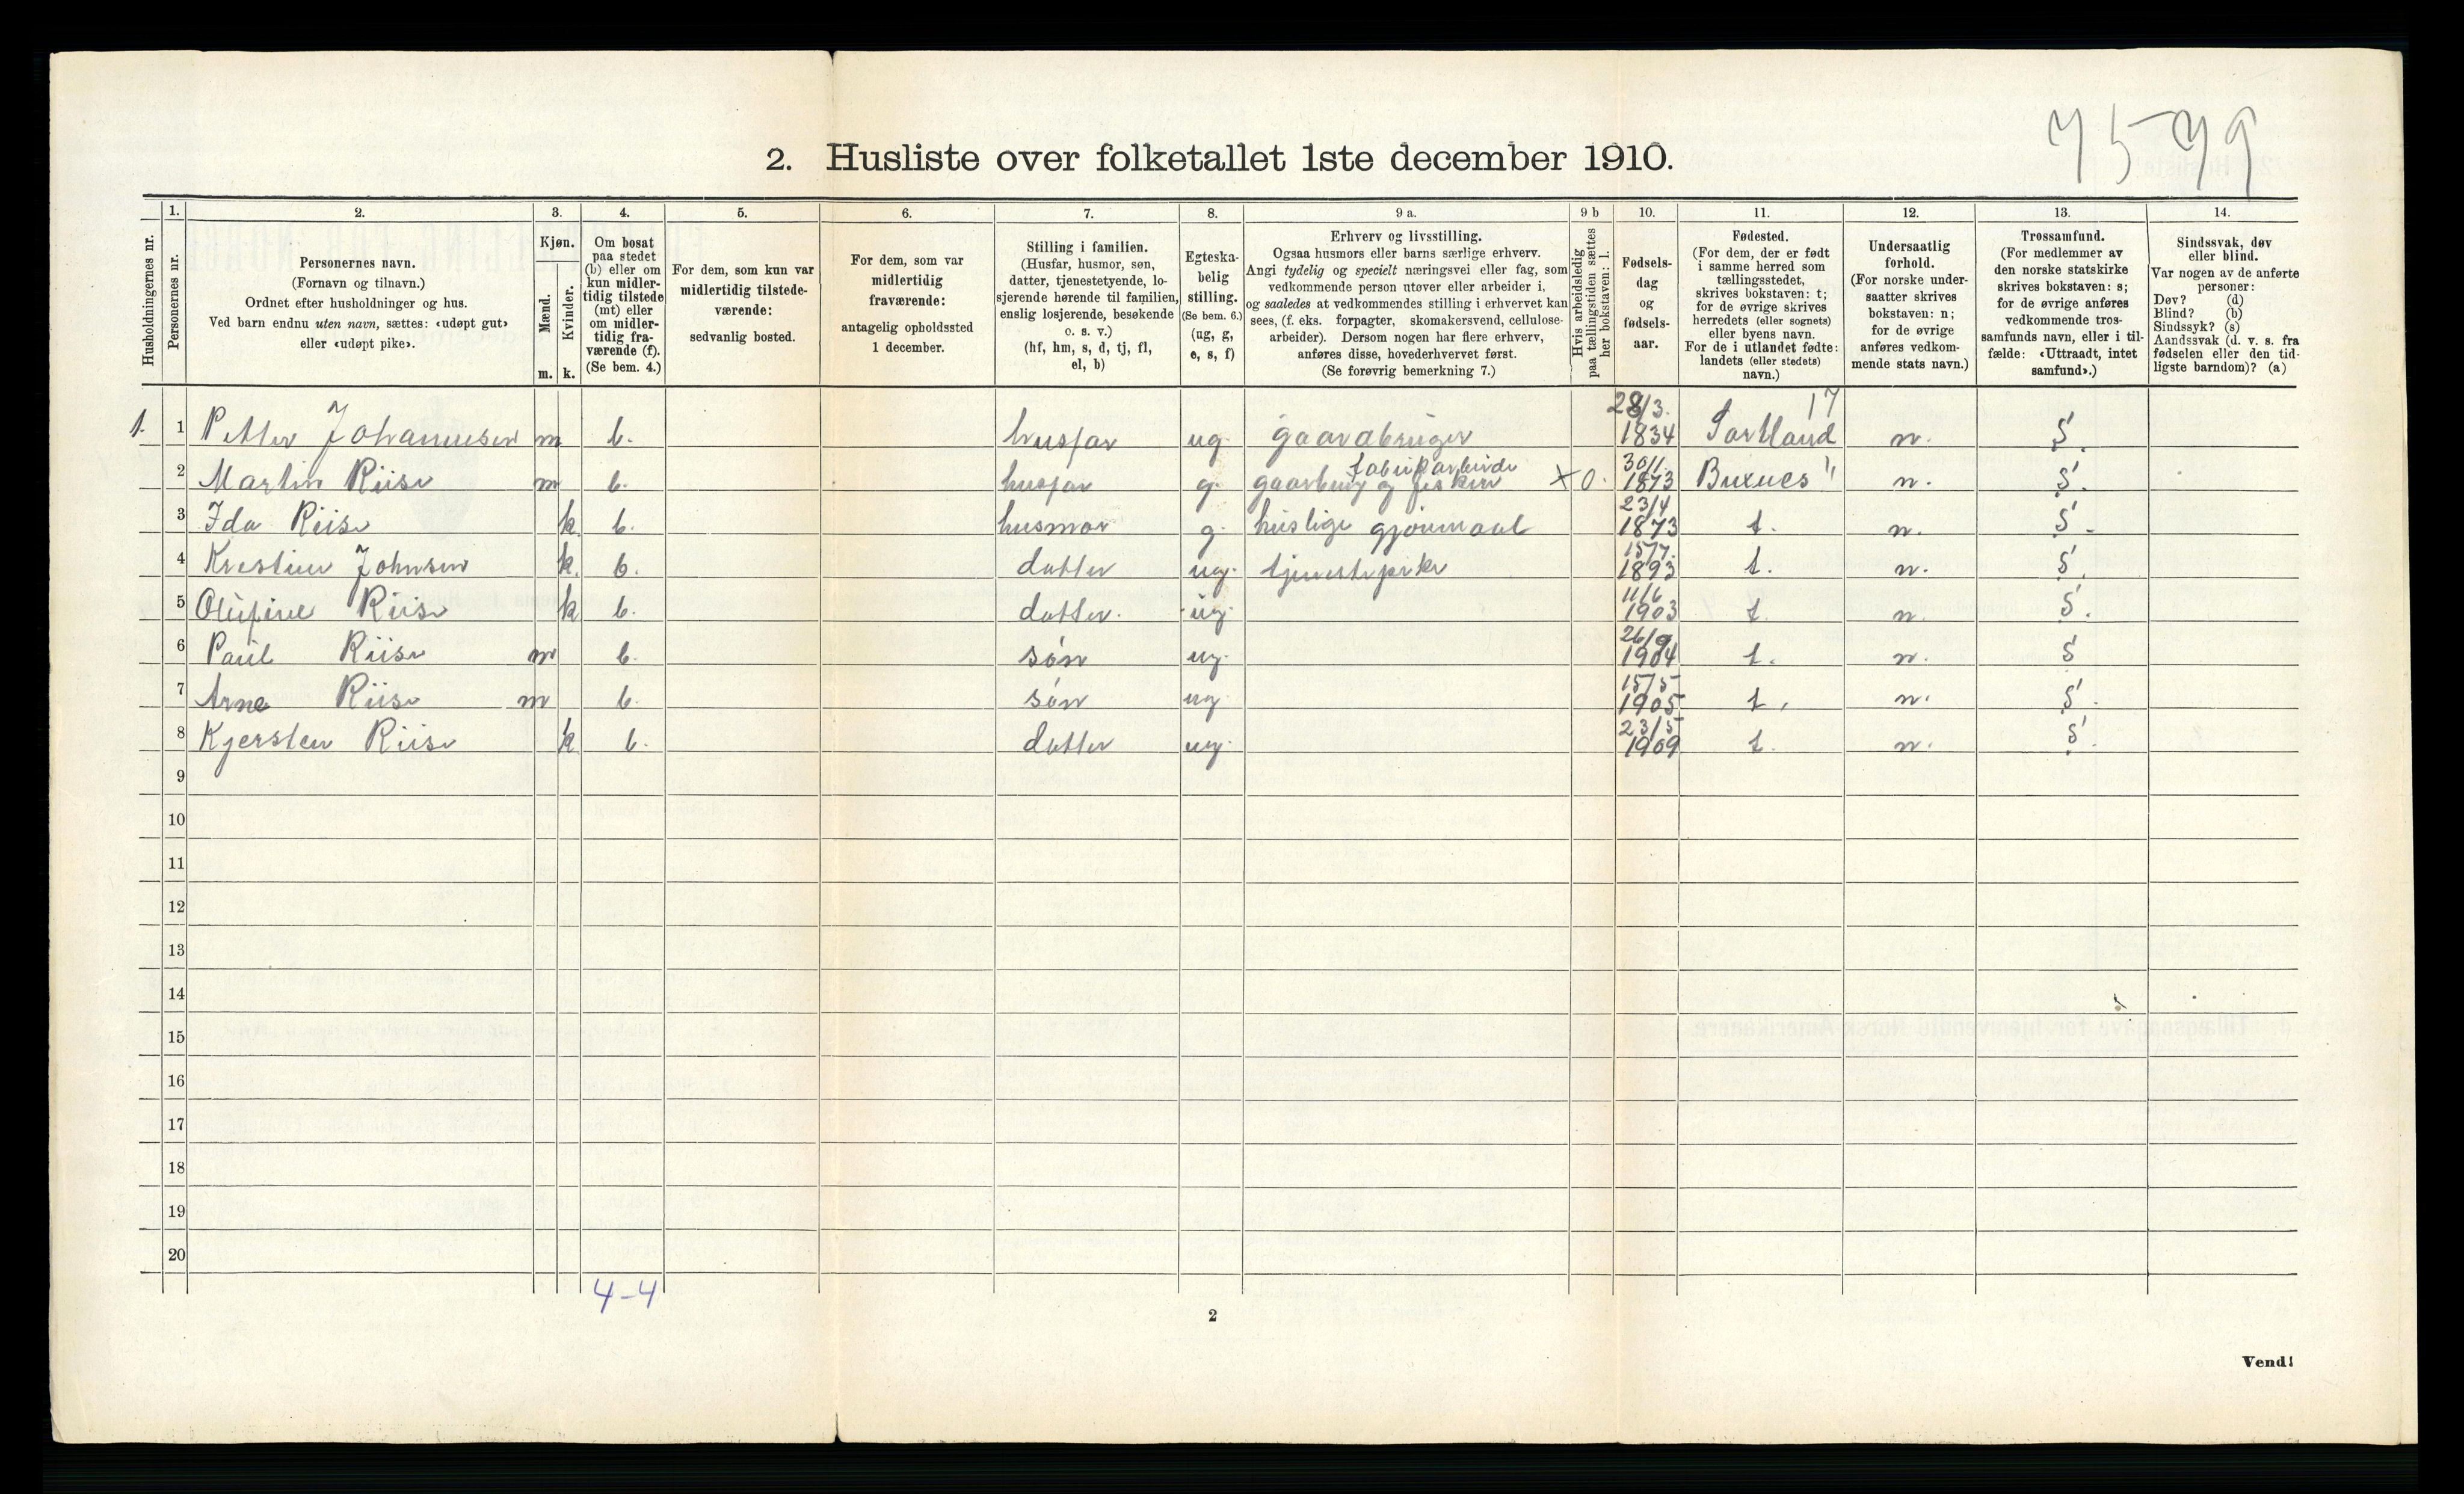 7599
2. Husliste over folketallet 1ste december 1910.
Husholdningernes nr.
1. Personernes nr.
2. Personernes navn.
(Fornavn og tilnavn.)
Ordnet efter husholdninger og hus.
Ved barn endnu uten navn, sættes: «udøpt gut»
eller «udøpt pike».
3. Kjøn.
Mænd. m.
Kvinder. k.
4. Om bosat
paa stedet
(b) eller om
kun midler-
tidig tilstede
(mt) eller
om midler-
tidig fra-
værende (f).
(Se bem. 4.)
5. For dem, som kun var
midlertidig tilstede-
værende:
sedvanlig bosted.
6. For dem, som var
midlertidig
fraværende:
antagelig opholdssted
1 december.
7. Stilling i familien.
(Husfar, husmor, søn,
datter, tjenestetyende, lo-
sjerende hørende til familien,
enslig losjerende, besøkende
o. s. v.)
(hf, hm, s, d, tj, fl,
el, b)
8. Egteska-
belig
stilling.
(Se bem. 6.)
(ug, g,
e, s, f)
9 a. Erhverv og livsstilling.
Ogsaa husmors eller barns særlige erhverv.
Angi tydelig og specielt næringsvei eller fag, som
vedkommende person utøver eller arbeider i,
og saaledes at vedkommendes stilling i erhvervet kan
sees, (f. eks. forpagter, skomakersvend, cellulose-
arbeider). Dersom nogen har flere erhverv,
anføres disse, hovederhvervet først.
(Se forøvrig bemerkning 7.)
9 b Hvis arbeidsledig
paa tællingstiden sættes
her bokstaven: l.
10. Fødsels-
dag
og
fødsels-
aar.
11. Fødested.
(For dem, der er født
i samme herred som
tællingsstedet,
skrives bokstaven: t;
for de øvrige skrives
herredets (eller sognets)
eller byens navn.
For de i utlandet fødte:
landets (eller stedets)
navn.)
12. Undersaatlig
forhold.
(For norske under-
saatter skrives
bokstaven: n;
for de øvrige
anføres vedkom-
mende stats navn.)
13. Trossamfund.
(For medlemmer av
den norske statskirke
skrives bokstaven: s;
for de øvrige anføres
vedkommende tros-
samfunds navn, eller i til-
fælde: «Uttraadt, intet
samfund».)
14. Sindssvak, døv
eller blind.
Var nogen av de anførte
personer:
Døv? (d)
Blind? (b)
Sindssyk? (s)
Aandssvak (d. v. s. fra
fødselen eller den tid-
ligste barndom)? (a)
1. 1 Petter Johannesen m b. husfar ug. gaardbruger 28/3. 1834 Sortland 17 n. S.
2 Martin Riise m b. husfar g. gaarbrug og fiskeri fabrikarbeide x 0. 30/1. 1873 Buxnes " n. S.
3 Ida Riise k b. husmor g. huslige gjøremaal 23/4 1873 t. n. S.
4 Krestine Johnsen k. b. datter ug. tjenestepike 15/7. 1893 t. n. S.
5 Olufine Riise k b. datter. ug. 11/6 1903 t. n. S.
6 Paul Riise m b. søn ug. 26/9 1904 t. n. S
7 Arne Riise m b. søn ug 15/5 1905 t. n. S.
8 Kjersten Riise k b. datter ug. 23/5 1909 t. n. S.
9
10
11
12
13
14
15
16
17
18
19
20
4-4
2
Vend!